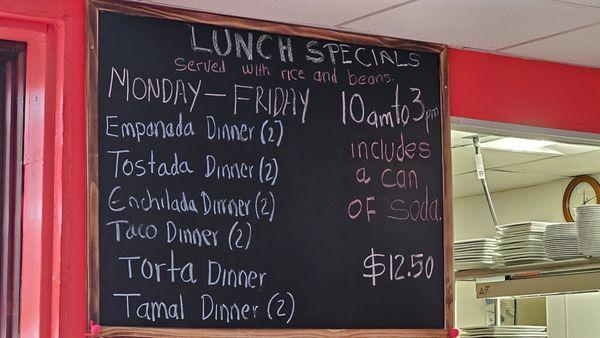 LUNCH SPECIALS
Served with rice and beans.
MONDAY – FRIDAY
10am to 3pm
Empanada Dinner (2)
Tostada Dinner (2)
Enchilada Dinner (2)
Taco Dinner (2)
Torta Dinner
Tamal Dinner (2)
includes
a can
OF soda.
$12.50